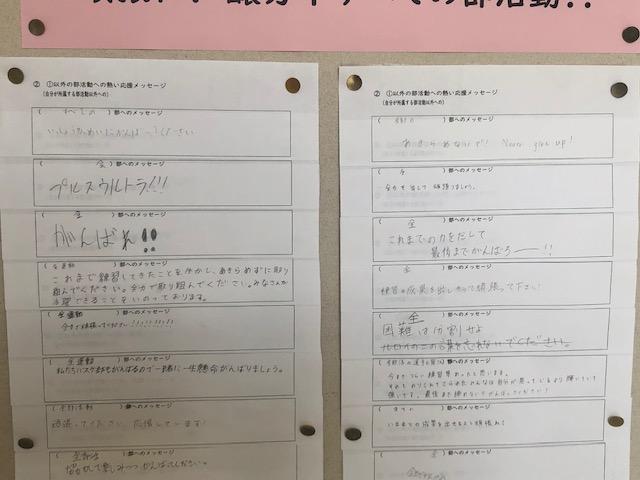 の部活動!!
② ①以外の部活動への熱い応援メッセージ
(自分が所属する部活動以外への)
( すべての ) 部へのメッセージ
いっしょうけんめいにがんばってください
( 全 ) 部へのメッセージ
プルスウルトラ!!!
( 全 ) 部へのメッセージ
がんばれ!!
( 全運動 ) 部へのメッセージ
これまで練習してきたことを生かし、あきらめずに取り
組んでください。全力で取り組んでください。みなさんが
活躍できることをいのっております。
( 全運動 ) 部へのメッセージ
今まで頑張ってください!!!!!!!!
( 全運動 ) 部へのメッセージ
私たちもがんばるので一緒に一生懸命がんばりましょう。
( 全部活動 ) 部へのメッセージ
頑張ってください。応援しています!
( 全部活 ) 部へのメッセージ
協力して楽しみつつがんばってください。
② ①以外の部活動への熱い応援メッセージ
(自分が所属する部活動以外への)
部へのメッセージ
あきらめないで! Never give up!
( 全 ) 部へのメッセージ
全力を出して頑張りましょう。
( 全 ) 部へのメッセージ
これまでの力をだして
最後までがんばろーーー!!
( 全 ) 部へのメッセージ
練習の成果を出しきって頑張って下さい!
( 全 ) 部へのメッセージ
困難は分割せよ
この言葉を忘れないでください。
部へのメッセージ
今までつらい練習等あったと思います。
それをのりこえてこられたみんなは自分が思っているより輝いていて
強いです。最後まで諦めないでがんばってください!
( すべて ) 部へのメッセージ
いままでの成果を出せるよう頑張れ!
部へのメッセージ